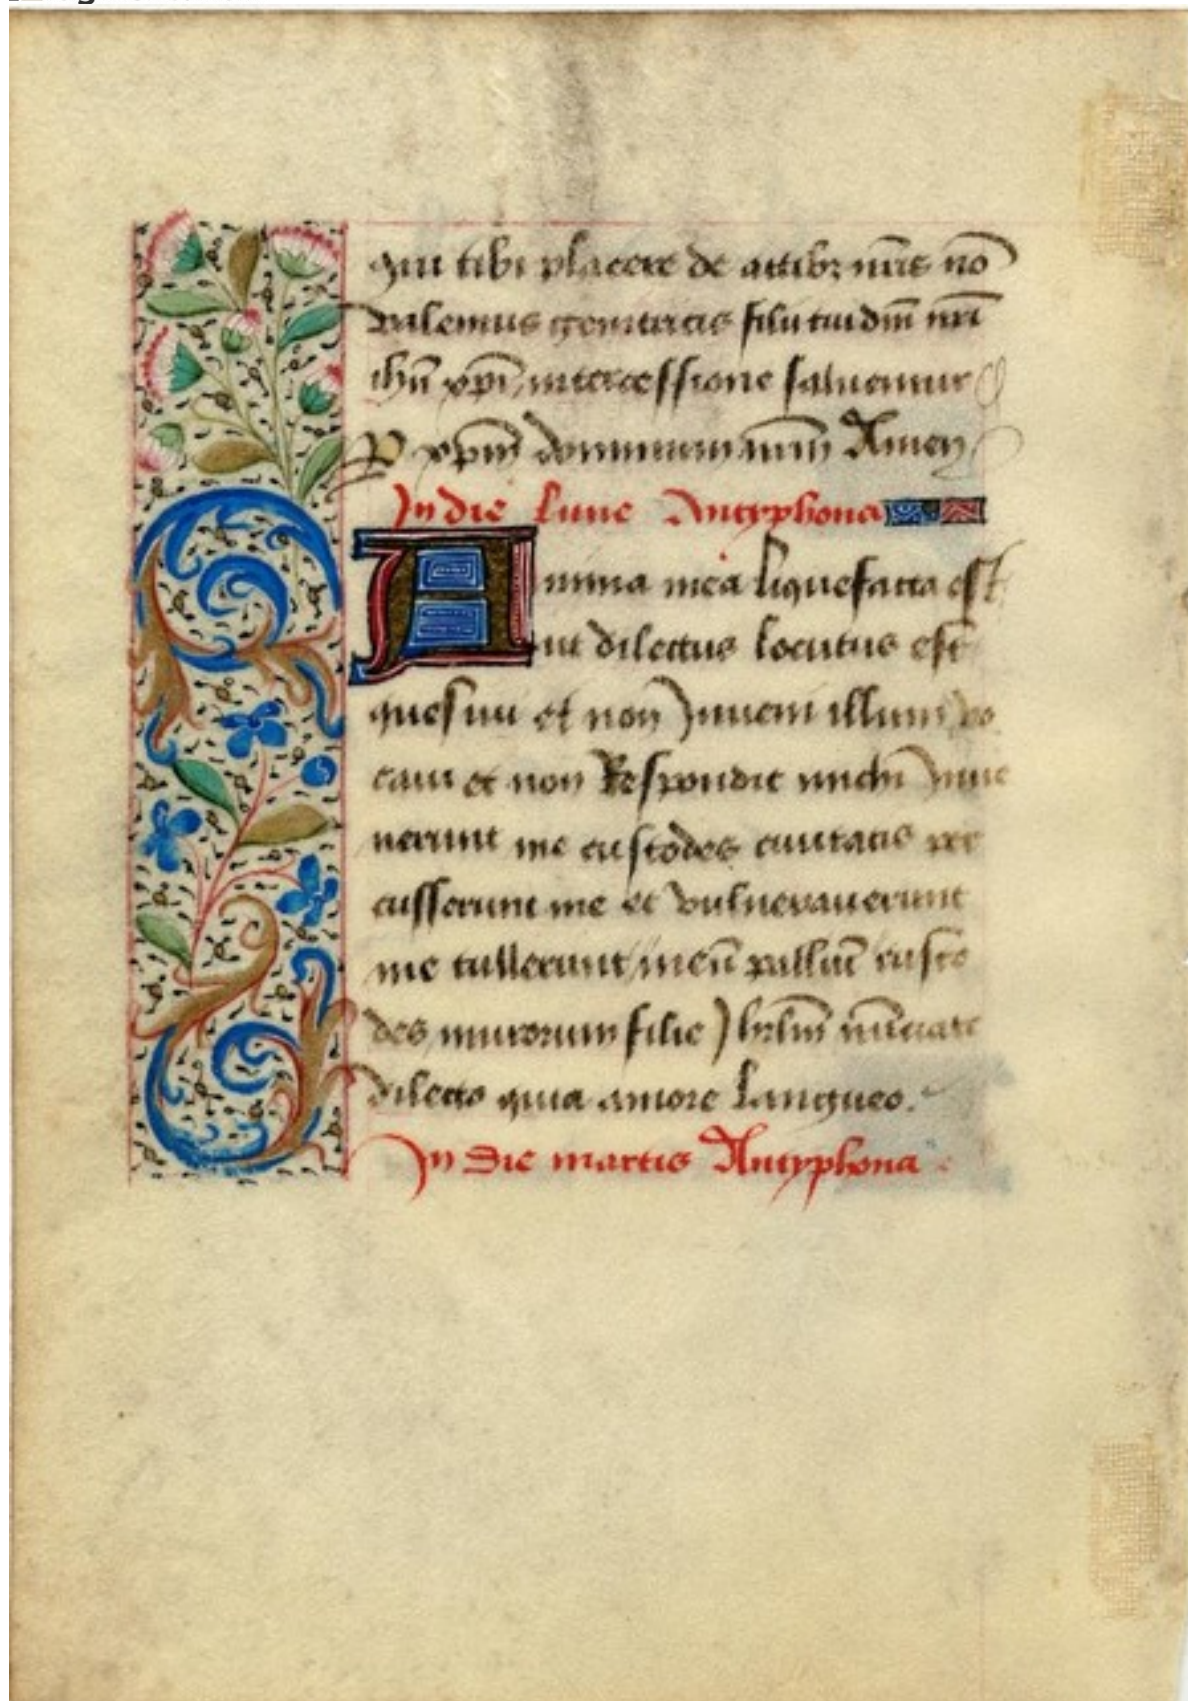 qui tibi placere de actibz nr̄is nō
valemus genitricis filii tui dn̄i nr̄i
ihū xp̄i intercessione saluemur
P xp̄m dominum nr̄m Amen
In die lune Antyphona
Anima mea liquefacta est
ut dilectus locutus est
quesiui et non Inueni illum vo
caui et non Respondit michi Inue
nerunt me custodes ciuitatis per
cusserunt me et vulnerauerunt
me tullerunt meū palliū custo
des murorum filie Ihrlm̄ nūciate
dilecto quia amore langueo.
In die martis Antyphona